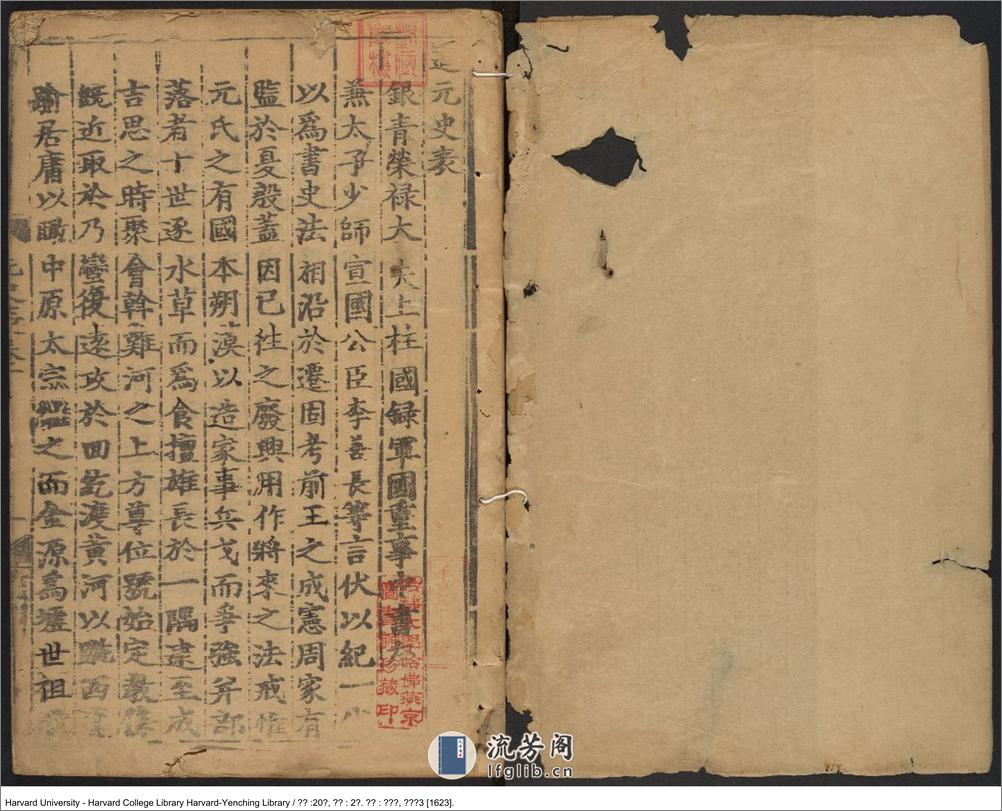 進元史表
銀青榮祿大夫上柱國録軍國重事中書左
兼太子少師宣國公臣李善長等言伏以紀一代
以爲書史法相沿於遷固考前王之成憲周家有
監於夏殷蓋因已徃之廢興用作將來之法戒惟
元氏之有國本朔漠以造家事兵戈而爭強并部
落者十世逐水草而爲食擅雄長於一隅逮至成
吉思之時聚會斡難河之上方尊位號始定教條
既近取於乃蠻復遠攻於回紇渡黃河以蹴西夏
踰居庸以瞰中原太宗繼之而金源爲墟世祖
哈佛大學哈佛燕京
圖書館珍藏印
流芳阁
lfglib.cn
Harvard University - Harvard College Library Harvard-Yenching Library / ?? :20?, ?? : 2?. ?? : ???, ???3 [1623].